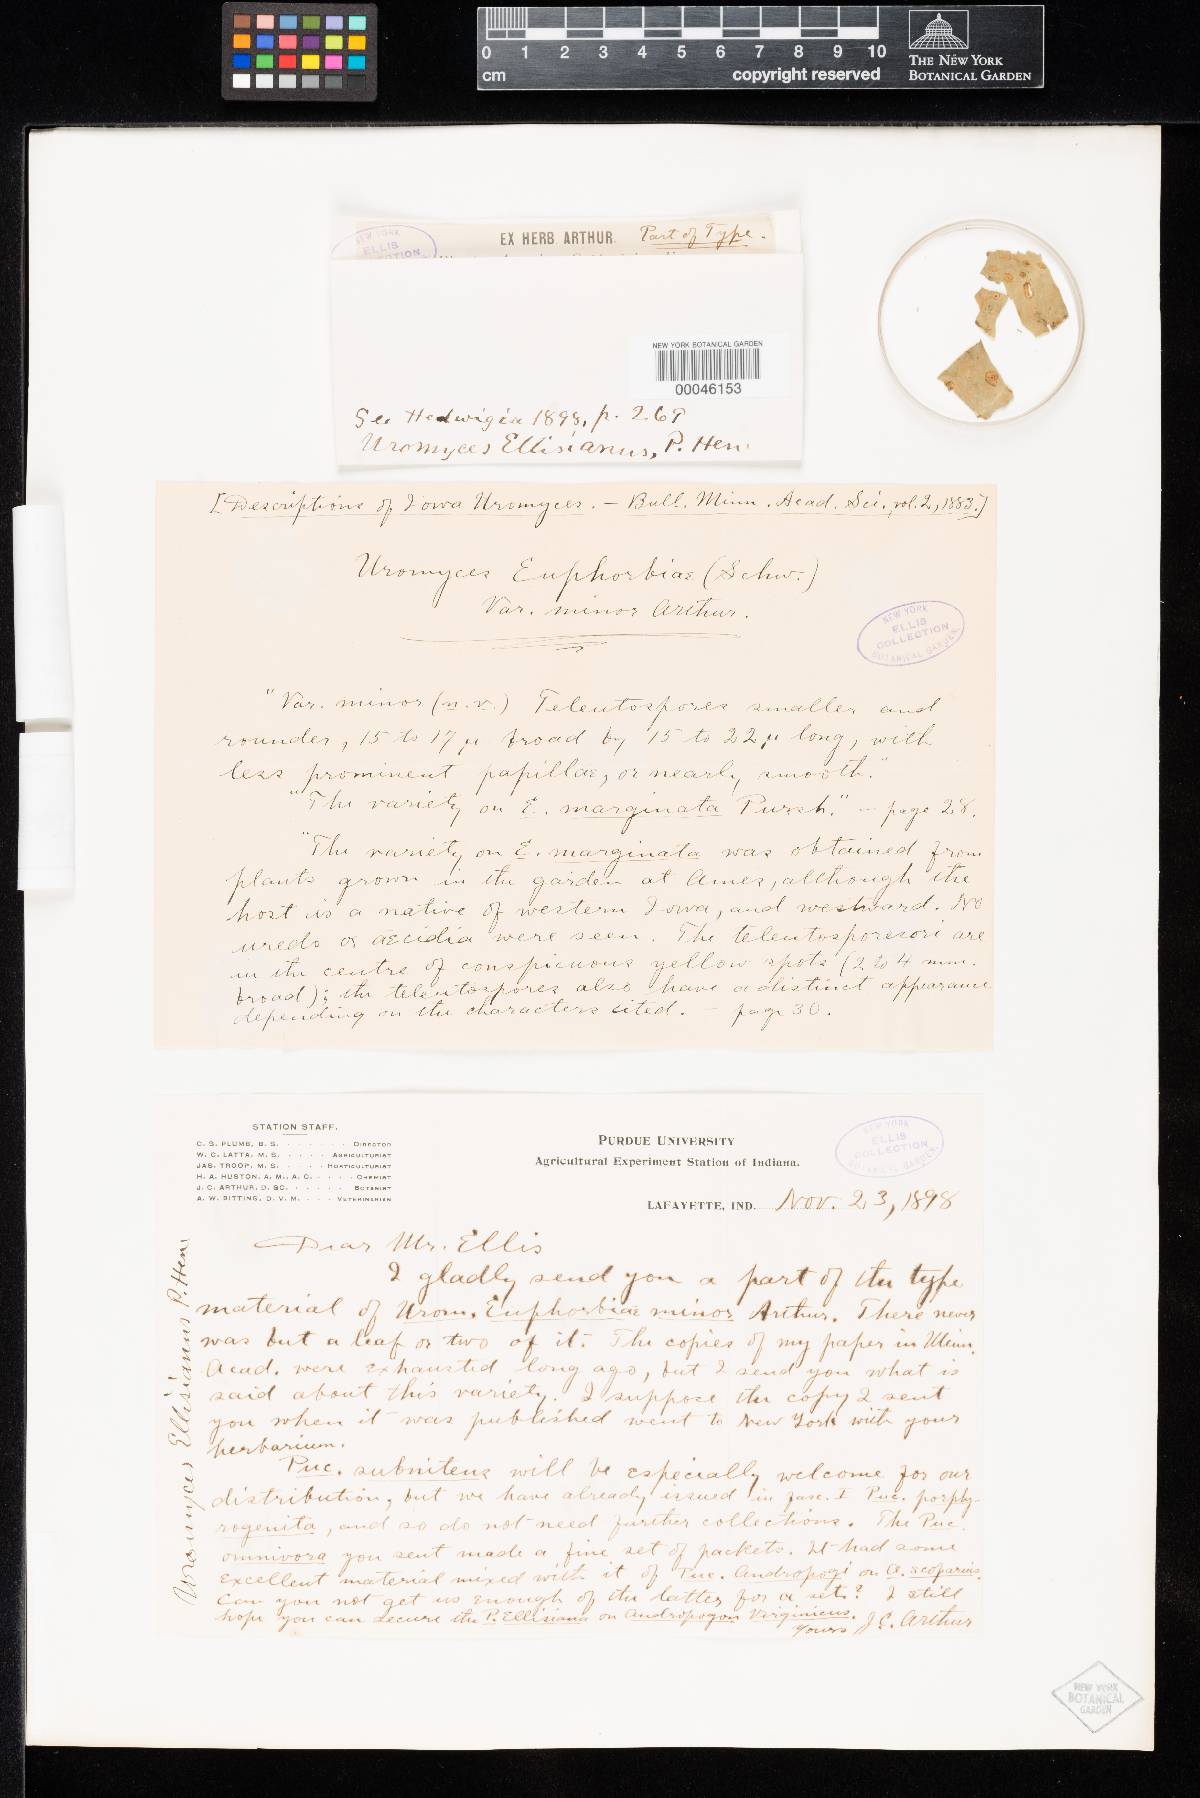 0 1 2 3 4 5 6 7 8 9 10
cm
copyright reserved
THE NEW YORK
BOTANICAL GARDEN
NEW YORK
ELLIS
COLLECTION
EX HERB. ARTHUR. Part of Type.
NEW YORK BOTANICAL GARDEN
00046153
See Hedwigia 1898, p. 269
Uromyces Ellisianus, P. Hen.
[Descriptions of Iowa Uromyces. — Bull. Minn. Acad. Sci. vol. 2, 1883.]
Uromyces Euphorbiae (Schw.)
Var. minor Arthur.
NEW YORK
ELLIS
COLLECTION
BOTANICAL GARDEN
"Var. minor (n.v.) Teleutospores smaller and
rounder, 15 to 17 µ broad by 15 to 22 µ long, with
less prominent papillae, or nearly smooth."
"The variety on E. marginata Pursh." — page 28.
"The variety on E. marginata was obtained from
plants grown in the garden at Ames, although the
host is a native of western Iowa, and westward. No
uredo or aecidia were seen. The teleutosporesori are
in the centre of conspicuous yellow spots (2 to 4 mm.
broad); the teleutospores also have a distinct appearance
depending on the characters cited. — page 30.
STATION STAFF.
C. S. PLUMB, B. S. DIRECTOR
W. C. LATTA, M. S. AGRICULTURIST
JAS. TROOP, M. S. HORTICULTURIST
H. A. HUSTON, A. M., A. C. CHEMIST
J. C. ARTHUR, D. SC. BOTANIST
A. W. BITTING, D. V. M. VETERINARIAN
PURDUE UNIVERSITY
Agricultural Experiment Station of Indiana.
NEW YORK
ELLIS
COLLECTION
BOTANICAL GARDEN
LAFAYETTE, IND. Nov. 23, 1898
Dear Mr. Ellis
I gladly send you a part of the type
material of Urom. Euphorbiae minor Arthur. There never
was but a leaf or two of it. The copies of my paper in Minn.
Acad. were exhausted long ago, but I send you what is
said about this variety. I suppose the copy I sent
you when it was published went to New York with your
herbarium.
Puc. subnitens will be especially welcome for our
distribution, but we have already issued in fasc. I Puc. porphy-
rogenita, and so do not need further collections. The Puc.
omnivora you sent made a fine set of packets. It had some
excellent material mixed with it of Puc. Andropogi on A. scoparius.
Can you not get us enough of the latter for a set? I still
hope you can secure the P. Ellisiana on Andropogon Virginicus.
Yours J. C. Arthur
Uromyces Ellisianus P. Hen.
NEW YORK
BOTANICAL
GARDEN